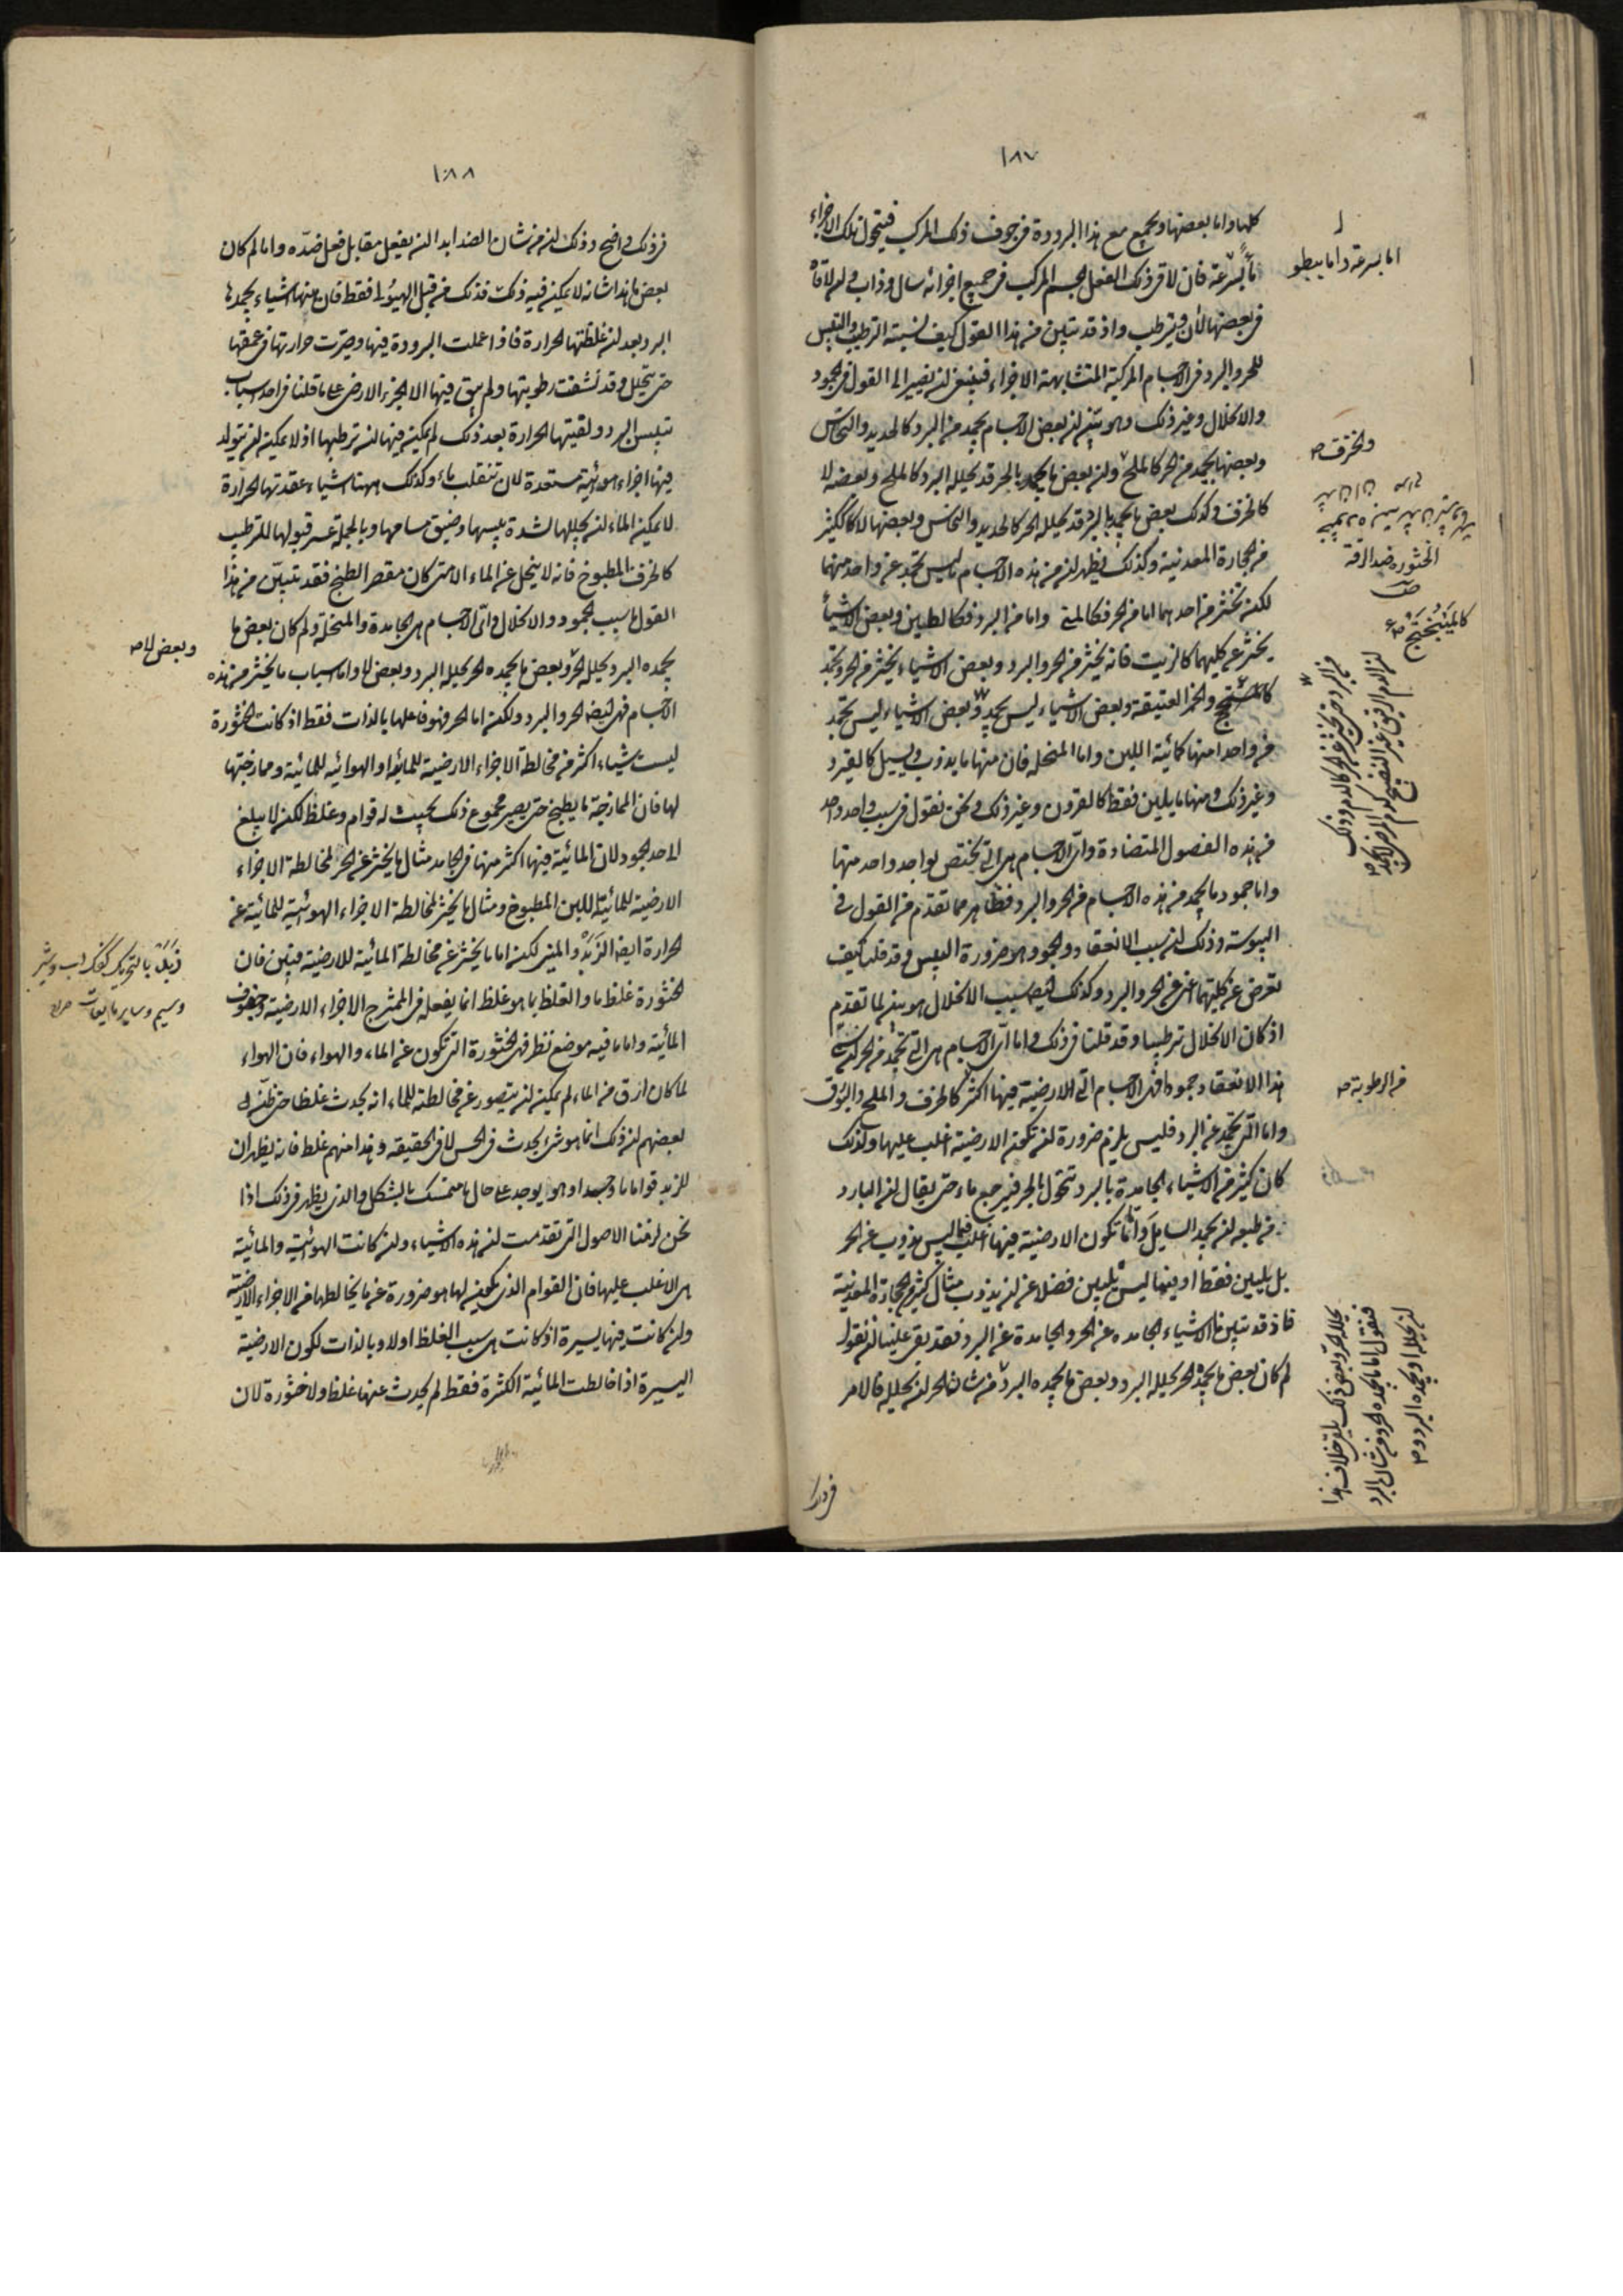 ١٨٧
كلها واما بعضها ويجمع مع هذا البرودة فى جوف ذلك المركب فيتحول تلك الاجزاء
ماء بسرعة فان لاقى ذلك الفعل لجسم المركب فى جميع اجزائه سال وذاب وان لاقاه
فى بعضها لان وترطب واذ قد تبين من هذا القول كيف نسبة الترطيب والتيبس
للحر والبرد فى الاجسام المركبة المتشابهة الاجزاء فينبغى ان نصير الى القول فى الجمود
والانحلال وغير ذلك وهو بين ان بعض الاجسام يجمد من البرد كالحديد والنحاس
وبعضها يجمد من الحر كالملح وان بعض ما يجمد بالحر قد يحلله البرد كالملح وبعضه لا
كالخزف وكذلك بعض ما يجمد بالبرد قد يحلله الحر كالحديد والنحاس وبعضها لا كالكثير
من الحجارة المعدنية وكذلك يظهر ان من هذه الاجسام ما ليس يجمد عن واحد منهما
لكن يخثر من احدهما اما من الحر فكالمنى واما من البرد فكالطين وبعض الاشياء
يخثر عن كليهما كالزيت فانه يخثر من الحر والبرد وبعض الاشياء يخثر من الحر ويجمد
والخمر العتيقة وبعض الاشياء ليس يجمد وبعض الاشياء ليس يجمد
من واحد منهما كمائية اللبن واما المنحلة فان منها ما يذوب ويسيل كالقير
وغير ذلك ومنها ما يلين فقط كالقرون وغير ذلك ونحن نقول فى سبب واحد واحد
من هذه الفصول المتضادة واى الاجسام هى التى يختص بواحد واحد منها
واما جمود ما يجمد من هذه الاجسام من الحر والبرد فظاهر مما تقدم من القول فى
اليبوسة وذلك ان سبب الانعقاد والجمود هو ضرورة اليبس وقد قلنا كيف
تعرض عن كليهما اعنى عن الحر والبرد وكذلك ايضا سبب الانحلال هو بين لما تقدم
اذ كان الانحلال ترطيبا وقد قلنا فى ذلك واما اى الاجسام هى التى تجمد من الحر
هذا الانعقاد وجمودا فهى الاجسام التى الارضية فيها اكثر كالخزف والملح والبورق
واما التى تجمد عن البرد فليس يلزم ضرورة ان تكون الارضية اغلب عليها ولذلك
كان كثير من الاشياء الجامدة بالبرد تتحول بالحر فيرجع ماء حتى يقال ان البارد
من طبعه ان يجمد السايل وانما تكون الارضية فيها اغلب فيما ليس يذوب عن الحر
بل يلين فقط او فيما ليس يلين فضلا عن ان يذوب مثال كثير من الحجارة المعدنية
فاذ قد تبين ما الاشياء الجامدة عن الحر والجامدة عن البرد فقد بقى علينا ان نقول
لم كان بعض ما يجمده الحر يحلله البرد وبعض ما يجمده البرد من شان الحر ان يحلله فالامر
اما بسرعة واما ببطو
والخزف صح
الخثورة ضد الرقة
من الرطوبة صح
١٨٨
فى ذلك واضح وذلك ان من شان الضد ابدا ان يفعل مقابل فعل ضده واما لم كان
بعض ما هذا شانه لا يمكن فيه ذلك فذلك من قبل الهيولى فقط فان منها اشياء يجمدها
البرد بعد ان غلظتها الحرارة فاذا عملت البرودة فيها وصيرت حرارتها فى عمقها
حتى يتحلل وقد نشفت رطوبتها ولم يبق فيها الا الجزء الارضى على ما قلنا فى احد اسباب
تيبيس البرد ولقيتها الحرارة بعد ذلك لم يمكن فيها ان ترطبها اذ لا يمكن ان يتولد
فيها اجزاء هوائية مستعدة لان تنقلب ماء وكذلك ههنا اشياء عقدتها الحرارة
لا يمكن الماء ان يحللها لشدة يبسها وضيق مسامها وبالجملة عسر قبولها للترطيب
كالخزف المطبوخ فانه لا ينحل عن الماء الا متى كان مقصر الطبخ فقد تبين من هذا
القول ما سبب الجمود والانحلال واى الاجسام هى الجامدة والمنحلة ولم كان بعض ما
يجمده البرد يحلله الحر وبعض ما يجمده الحر يحلله البرد وبعض لا واما اسباب ما يخثر من هذه
الاجسام فهى ايضا الحر والبرد ولكن اما الحر فهو فاعلها بالذات فقط اذ كانت الخثورة
ليست شيئا اكثر من مخالطة الاجزاء الارضية للمائية او الهوائية للمائية وممازجتها
لها فان الممازجة ما يطبخ حتى يصير مجموع ذلك بحيث له قوام وغلظ لكن لا يبلغ
الا حد الجمود لان المائية فيها اكثر منها فى الجامد مثال ما يخثر عن الحر لمخالطة الاجزاء
الارضية للمائية اللبن المطبوخ ومثال ما يخثر لمخالطة الاجزاء الهوائية للمائية عن
الحرارة ايضا الزبد والمنى لكن اما ما يخثر عن مخالطة المائية للارضية فبين فان
الخثورة غلظ ما والغلظ بما هو غلظ انما يفعله فى الممتزج الاجزاء الارضية وجفوف
المائية واما ما فيه موضع نظر فهى الخثورة التى تكون عن الماء والهواء فان الهواء
لما كان ارق من الماء لم يمكن ان يتصور عن مخالطته للماء انه يحدث غلظا حتى ظن
بعضهم ان ذلك انما هو شىء يحدث فى الحس لا فى الحقيقة وهذا منهم غلط فانه يظهر ان
للزبد قواما ما وجسدا وهو يوجد على حال ما متمسك بالشكل والذى يظهر فى ذلك اذا
نحن لزمنا الاصول التى تقدمت ان هذه الاشياء وان كانت الهوائية والمائية
هى الاغلب عليها فان القوام الذى يكون لها هو ضرورة عن ما يخالطها من الاجزاء الارضية
وان كانت فيها يسيرة اذ كانت هى سبب الغلظ اولا وبالذات لكون الارضية
اليسيرة اذا خالطت المائية الكثيرة فقط لم يحدث عنها غلظ ولا خثورة لان
وبعض لا صح
زبد بالتحريك كفك آب وشير
وسيم وساير مايعات صراح